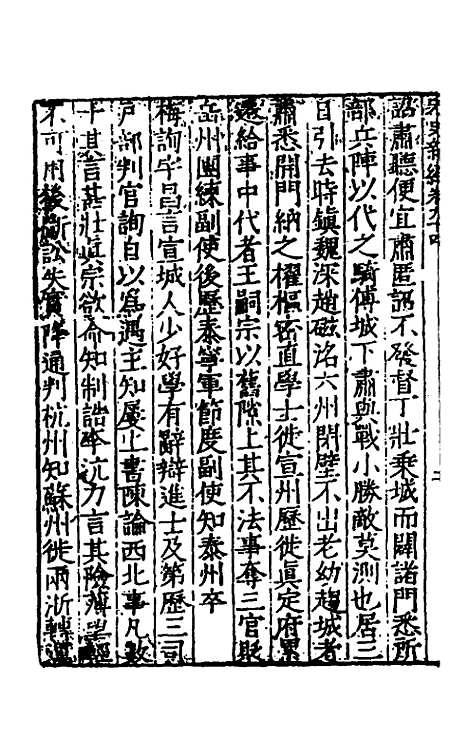 宋史新編卷九十四
詔肅聽便宜肅匿詔不發督丁壯乘城而闢諸門悉所
部兵陣以代之騎傅城下肅與戰小勝敵莫測也居三
日引去時鎮魏深趙磁洺六州閉壁不出老幼趨城者
肅悉開門納之擢樞密直學士徙宣州歷徙眞定府累
遷給事中代者王嗣宗以舊隙上其不法事奪三官貶
岳州團練副使後歷泰寧軍節度副使知泰州卒
梅詢字昌言宣城人少好學有辭辯進士及第歷三司
戶部判官詢自以爲遇主知屢上書陳論西北事凡數
十其言甚壯眞宗欲命知制誥李沆力言其險薄望輕
不可用後斷訟失實降通判杭州知蘇州徙兩浙轉運
二